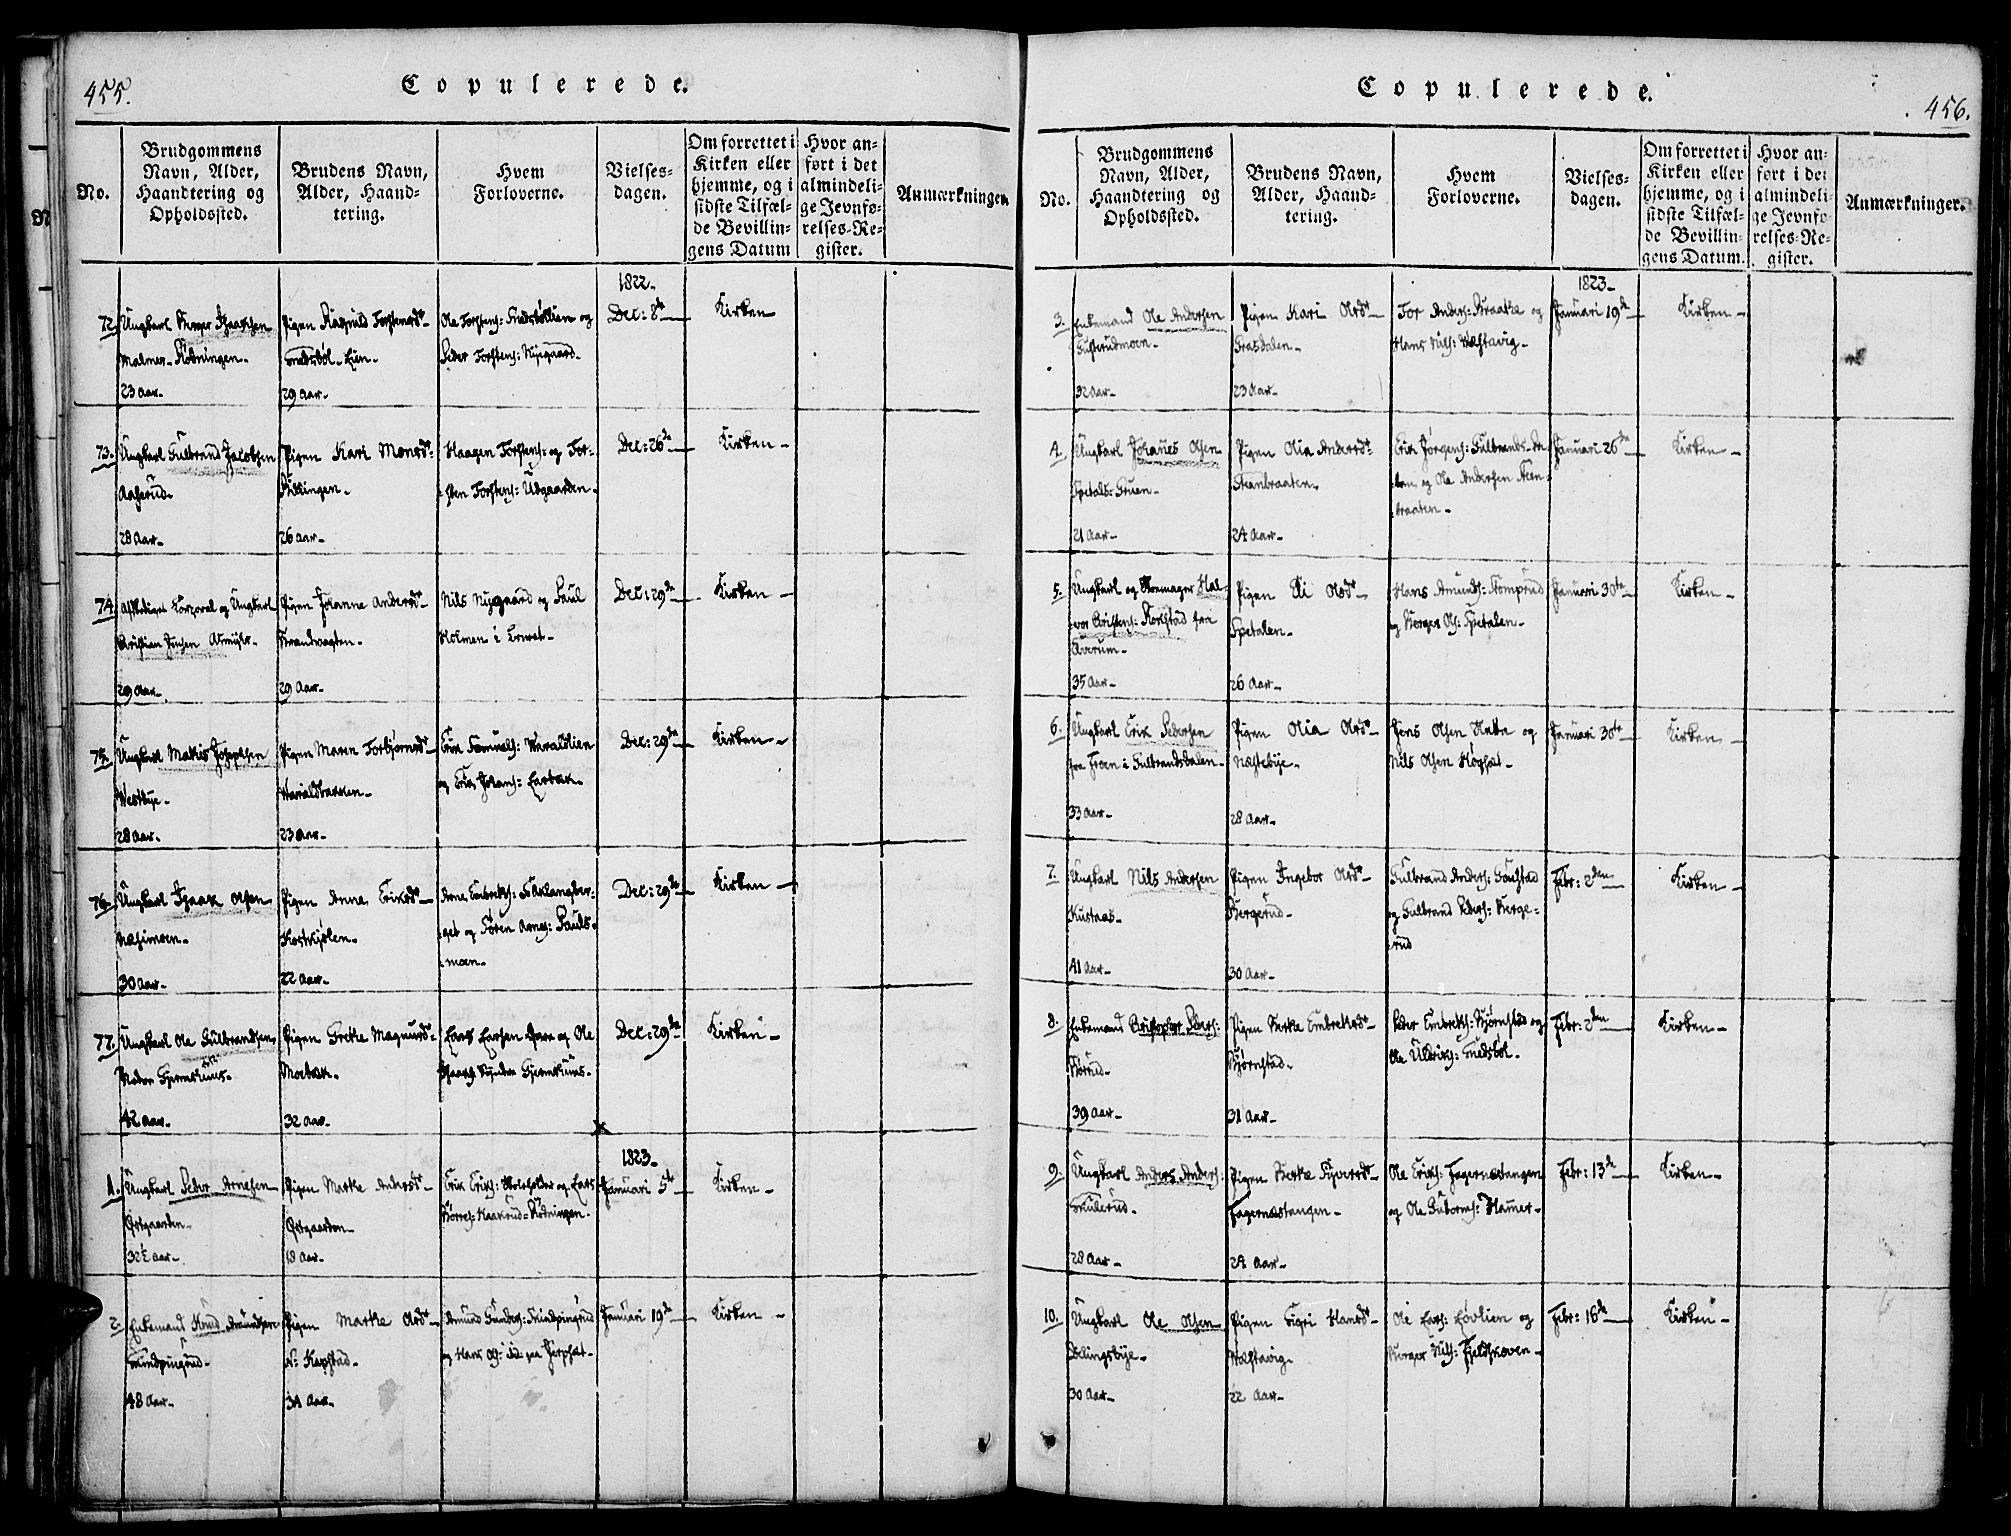 455.
Copulerede.
No.
Brudgommens
Navn, Alder,
Haandtering og
Opholdssted.
Brudens Navn,
Alder, Haand-
tering.
Hvem
Forloverne.
Vielses-
dagen.
Om forrettet i
Kirken eller
hjemme, og i
sidste Tilfæl-
de Bevillin-
gens Datum
Hvor an-
ført i det
almindeli-
ge Jevnfø-
relses-Re-
gister.
Anmærkninger.
1822.
72. Ungkarl
Malmer-Rødningen.
23 Aar.
Pigen Ragnild Torstensdr
Lien.
29 Aar.
Ole Torstens: og
Peder Torstens: Nygaard.
Dec: 8de
Kirken
73. Ungkarl Gulbrand Jacobsen
Aaserud.
28 Aar.
Pigen Kari Monsdr
26 Aar.
Haagen Torstens: og Tor-
sten Torstens: Udgaarden.
Dec: 26de
Kirken
74. Afskediget Corporal og Ungkarl
29 Aar.
Pigen Johanne Andersdr
Strandvagten.
29 Aar.
Nils Nygaard og Paul
Holmen i
Dec: 29de
Kirken
75. Ungkarl Mathis Josephsen
Westbye.
28 Aar.
Pigen Maren Torbjørnsdr
Haraldbakken.
23 Aar.
Erik Samuels: Haraldlien
og Erik Johans:
Dec: 29de
Kirken
76. Ungkarl Isaak Olsen
Næsimoen.
30 Aar.
Pigen Anna Eriksdr
22 Aar.
Arne Embreths:
get og Søren Arnes: Pauls-
moen.
Dec: 29de
Kirken
77. Ungkarl Ole Gulbrandsen
42 Aar.
Pigen Grethe Magnusdr
Moebæk.
32 Aar.
Lars Larsen og Ole
Dec: 29de
Kirken
1823.
1. Ungkarl Peder Arnesen
Østgaarden.
32½ Aar.
Pigen Marthe Andersdr
Østgaarden
18 Aar.
Erik Eriks: Skoleholder og Lars
Børres: Kaakrud-Rødningen.
Januari 5te
Kirken
2. Enkemand Knud Amundsen
48 Aar.
Pigen Marthe Olsdr
N: Kapstad.
34 Aar.
Amund Gunders:
og Hans Ols:
Januari 19de
Kirken
456.
Copulerede.
No.
Brudgommens
Navn, Alder,
Haandtering og
Opholdssted.
Brudens Navn,
Alder, Haand-
tering.
Hvem
Forloverne.
Vielses-
dagen.
Om forrettet i
Kirken eller
hjemme, og i
sidste Tilfæl-
de Bevillin-
gens Datum.
Hvor an-
ført i det
almindeli-
ge Jevnfø-
relses-Re-
gister.
Anmærkninger.
1823.
3. Enkemand Ole Andersen
Gusterudmoen.
32 Aar.
Pigen Kari Olsdr
Grasdalen.
23 Aar.
Tor Anders: Braathe og
Hans Nils: Næstavig.
Januari 19de
Kirken
4. Ungkarl Johanes Olsen
Spetals-Stuen.
21 Aar.
Pigen Olia Andersdr
Steenbraaten.
24 Aar.
Erik Jørgens:
og Ole Andersen Steen-
braaten.
Januari 26de
Kirken
5. Ungkarl og Skomager Hal-
vor Christens: fra
35 Aar.
Pigen Eli Olsdr
Spetalen.
26 Aar.
Hans Amunds: Tomprud
og Børger Ols: Spetalen.
Januari 30te
Kirken
6. Ungkarl Erik Pedersen
fra Froen i Gulbrandsdalen.
33 Aar.
Pigen Olia Olsdr
Næstebye.
28 Aar.
Jens Olsen og
Nils Olsen
Januari 30te
Kirken
7. Ungkarl Nils Andersen
Kustaas.
41 Aar.
Pigen Ingebor Olsdr
Bergerud.
30 Aar.
Gulbrand Anders: Goustad
og Gulbrand Peders: Berge-
rud
Febr: 2den
Kirken
8. Enkemand Kristopher Peders:
39 Aar.
Pigen Berthe Embrethsdr
Bjørnstad.
31 Aar.
Peder Embreths: Bjørnstad og
Ole Uldriks:
Febr: 2den
Kirken
9. Ungkarl Anders Anders:
Smulerud.
28 Aar.
Pigen Berthe Syversdr
Fagernæstangen.
24 Aar.
Ole Eriks: Fagernæstangen
og Ole Guttorms: Hamer.
Febr: 13de
Kirken
10. Ungkarl Ole Olsen
Dølingsbye.
30 Aar.
Pigen Sigri Hansdr
Næstavig
22 Aar.
Ole Lars: Løvlien og
Børger Nils: Fjeldskoven.
Febr: 16de
Kirken